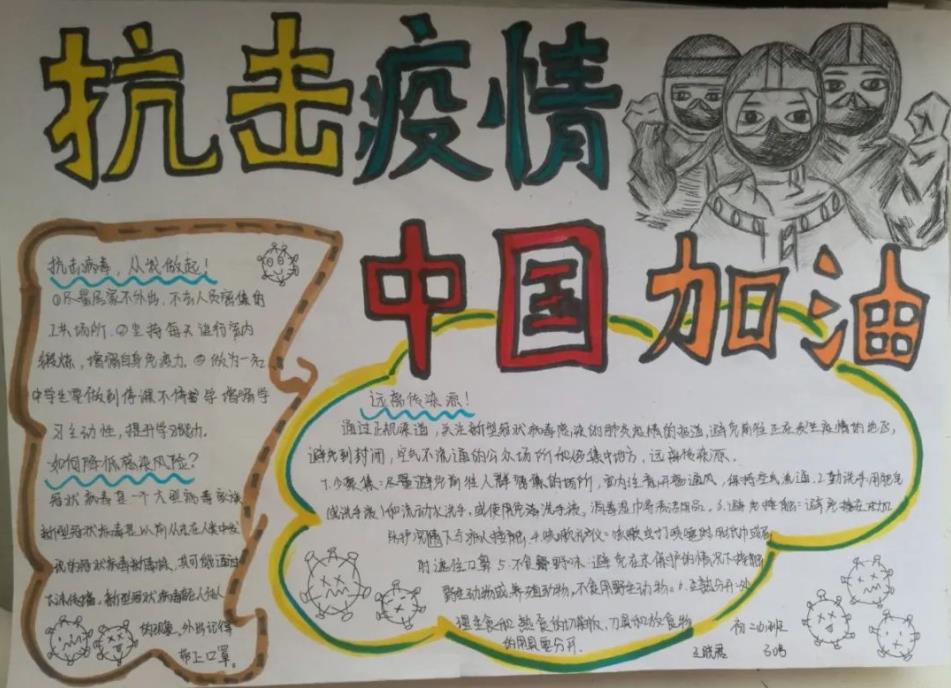 抗击疫情
中国加油
抗击病毒，从我做起！
①尽量居家不外出，不去人员密集的
公共场所。②坚持每天进行室内
锻炼，增强自身免疫力。③做为一名
中学生要做到停课不停学 增强学
习主动性，提升学习能力。
如何降低感染风险？
冠状病毒是一个大型病毒家族
新型冠状病毒是以前从未在人体中发
现的冠状病毒新毒株，其可能通过
飞沫传播，新型冠状病毒能人传人
的现象，外出记得
带上口罩。
远离传染源！
通过正规渠道，关注新型冠状病毒感染的肺炎疫情的报道，避免前往正在发生疫情的地区，
避免到封闭，空气不流通的公众场所和人多集中地方，远离传染源。
1.少聚集：尽量避免前往人群密集的场所，室内注意开窗通风，保持空气流通。2.勤洗手：用肥皂
或洗手液）和流动水洗手，或使用免洗洗手液，消毒湿巾等清洁用品。3.避免接触：避免接在未加
防护沉情下与病人接触。4.咳嗽礼仪：咳嗽或打喷嚏时用纸巾或
肘遮住口鼻 5.不食野味：避免在未保护的情况下接触
野生动物或养殖动物。不食用野生动物。6.生熟分开：处
理生食和熟食的切菜板，刀具和放食物
的用具要分开。
初二（1）班